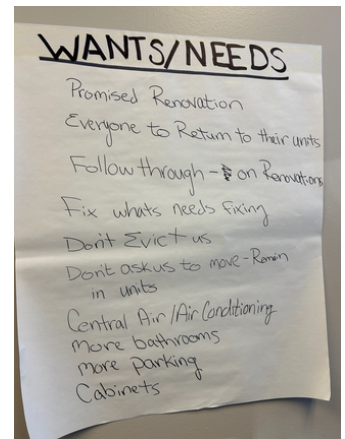 WANTS/NEEDS
Promised Renovation
Everyone to Return to their units
Follow through - on Renovations
Fix whats needs fixing
Don't Evict us
Don't ask us to move - Remain
in units
Central Air / Air Conditioning
More bathrooms
more parking
Cabinets